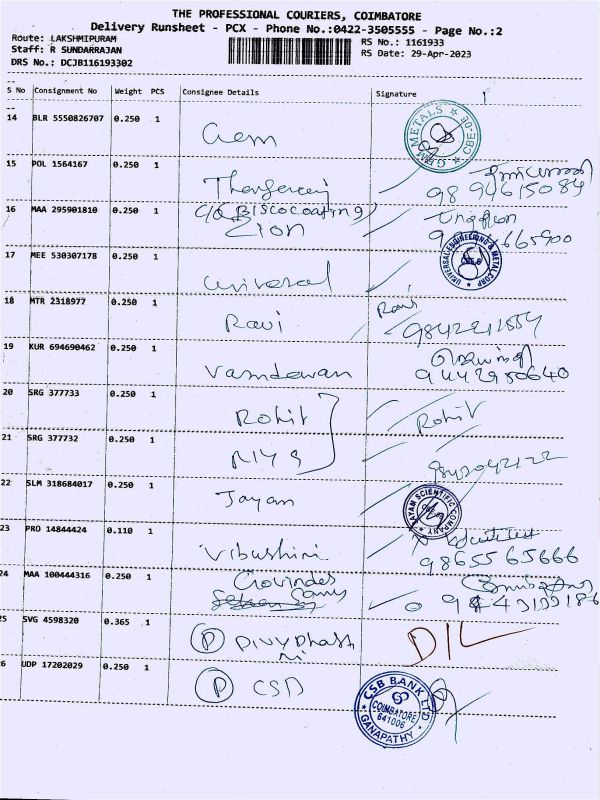 THE PROFESSIONAL COURIERS, COIMBATORE
Delivery Runsheet - PCX - Phone No.:0422-3505555 - Page No.:2
Route: LAKSHMIPURAM
RS No.: 1161933
Staff: R SUNDARRAJAN
RS Date: 29-Apr-2023
DRS No.: DCJB116193302
S No Consignment No Weight PCS Consignee Details Signature
14 BLR 5550826707 0.250 1 Gem
GEM METALS CBE-06
15 POL 1564167 0.250 1
16 MAA 295901810 0.250 1 C/o (BISCOCOATING)
Zion
17 MEE 530307178 0.250 1 Universal
UNIVERSAL ENGINEERING & METAL CORP
18 MTR 2318977 0.250 1 Ravi Ravi
19 KUR 694690462 0.250 1
9442980640
20 SRG 377733 0.250 1 Rohit Rohit
21 SRG 377732 0.250 1 Riya
22 SLM 318684017 0.250 1 Jayam
JAYAM SCIENTIFIC COMPANY
23 PRO 14844424 0.110 1 Vibushini
9865565666
24 MAA 100444316 0.250 1 Govindas
Samy
25 SVG 4598320 0.365 1 (P)
26 UDP 17202029 0.250 1 (P) CSB
CSB BANK LTD
COIMBATORE
641006
GANAPATHY